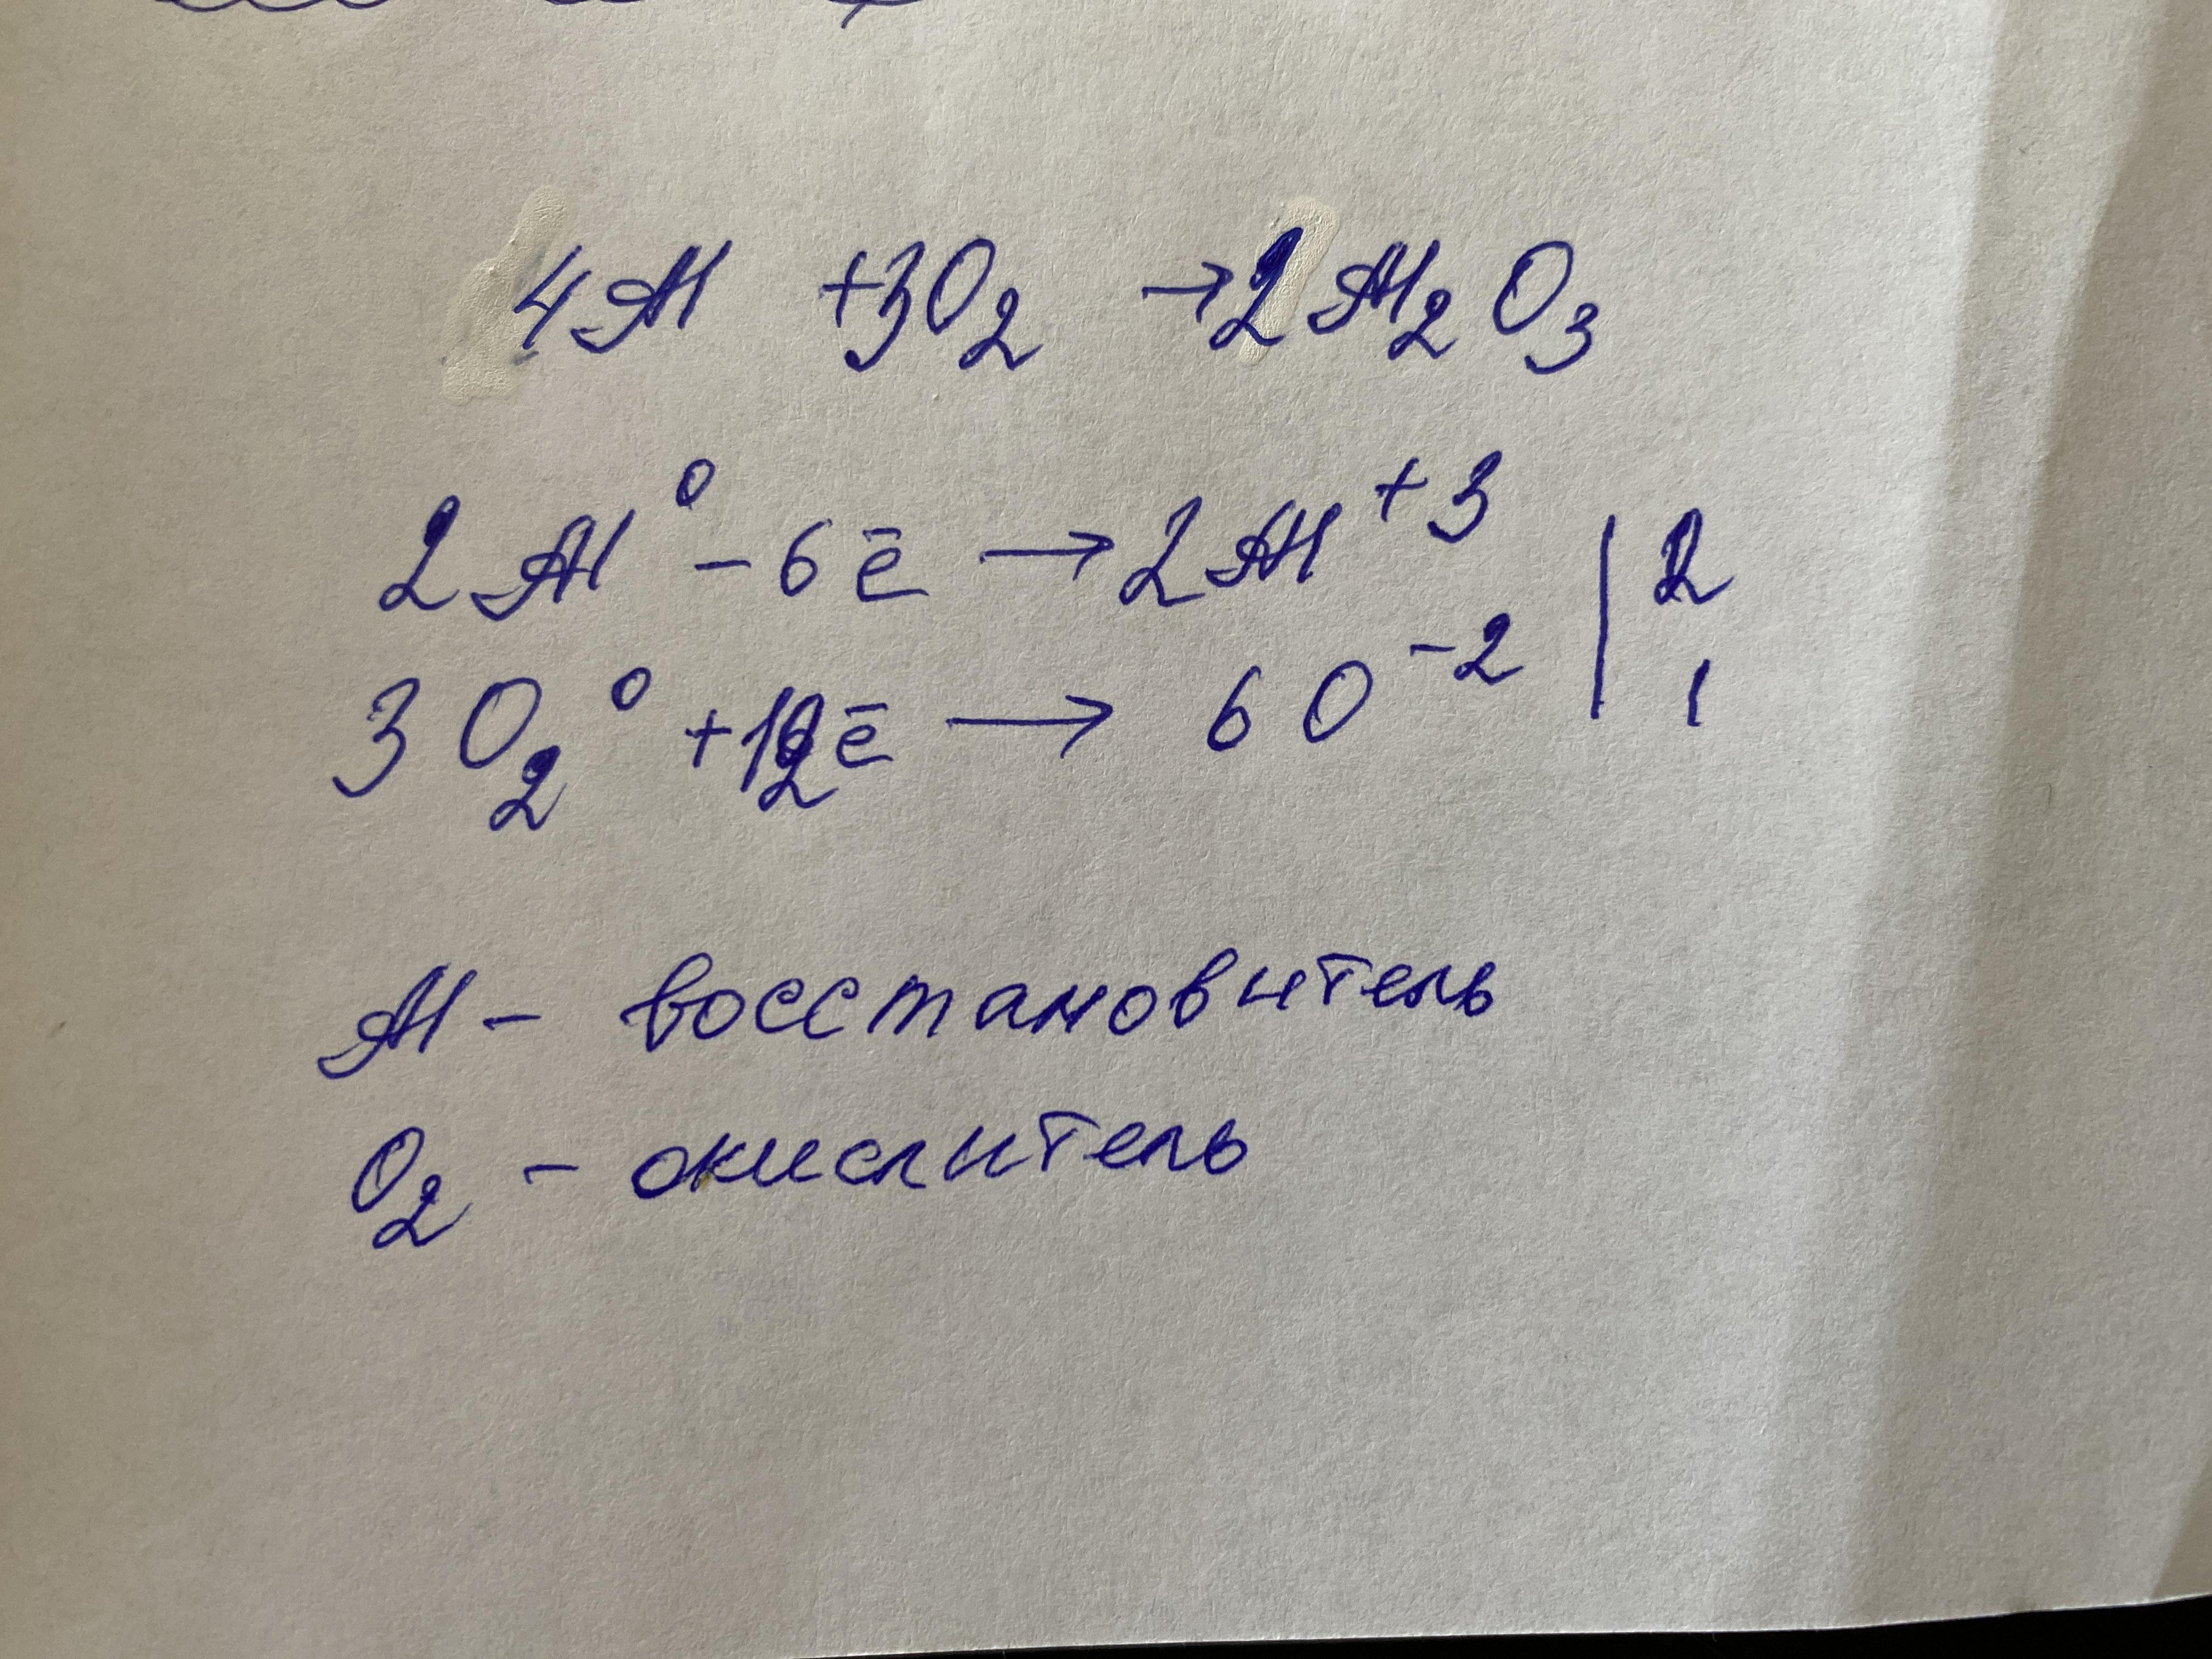 4Al +3O₂ →2Al₂O₃
2Al⁰ – 6ē → 2Al⁺³ | 2
3O₂⁰ +12ē → 6O⁻² | 1
Al – восстановитель
O₂ – окислитель